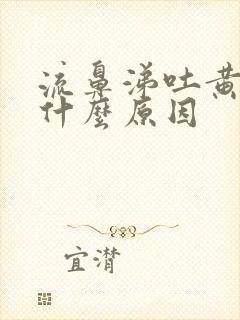 流鼻涕吐黄
什麼原因
宜潸